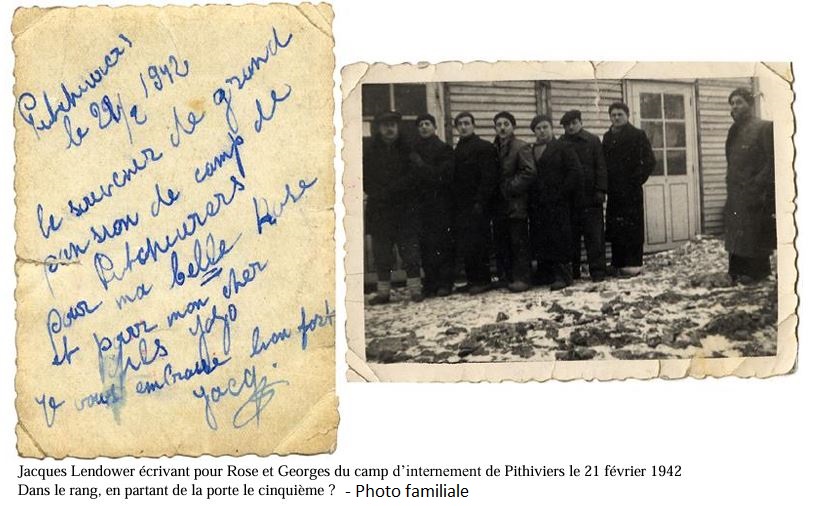 Pitchiviers
le 21/2 1942
le souvenir de grand
pension de camp de
Pitchiviers
pour ma belle Rose
et pour mon cher
fils Jojo
je vous embrasse bien fort
Jacq.
Jacques Lendower écrivant pour Rose et Georges du camp d'internement de Pithiviers le 21 février 1942
Dans le rang, en partant de la porte le cinquième ? - Photo familiale